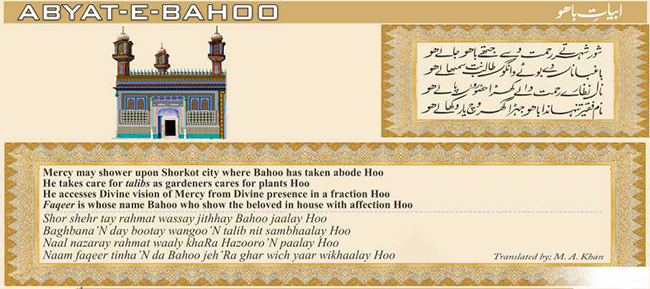 ABYAT-E-BAHOO
ابیاتِ باھُو
شور شہر تے رحمت وسے جتھے باھو جالے ھو
باغباناں دے بوٹے وانگوں طالب نت سمبھالے ھو
نال نظارے رحمت والے کھڑا حضوروں پالے ھو
نام فقیر تنہاندا باھو جہڑا گھر وچ یار وکھالے ھو
Mercy may shower upon Shorkot city where Bahoo has taken abode Hoo
He takes care for talibs as gardeners cares for plants Hoo
He accesses Divine vision of Mercy from Divine presence in a fraction Hoo
Faqeer is whose name Bahoo who show the beloved in house with affection Hoo
Shor shehr tay rahmat wassay jithhay Bahoo jaalay Hoo
Baghbana'N day bootay wangoo'N talib nit sambhaalay Hoo
Naal nazaray rahmat waaly khaRa Hazooro'N paalay Hoo
Naam faqeer tinha'N da Bahoo jeh'Ra ghar wich yaar wikhaalay Hoo
Translated by; M. A. Khan